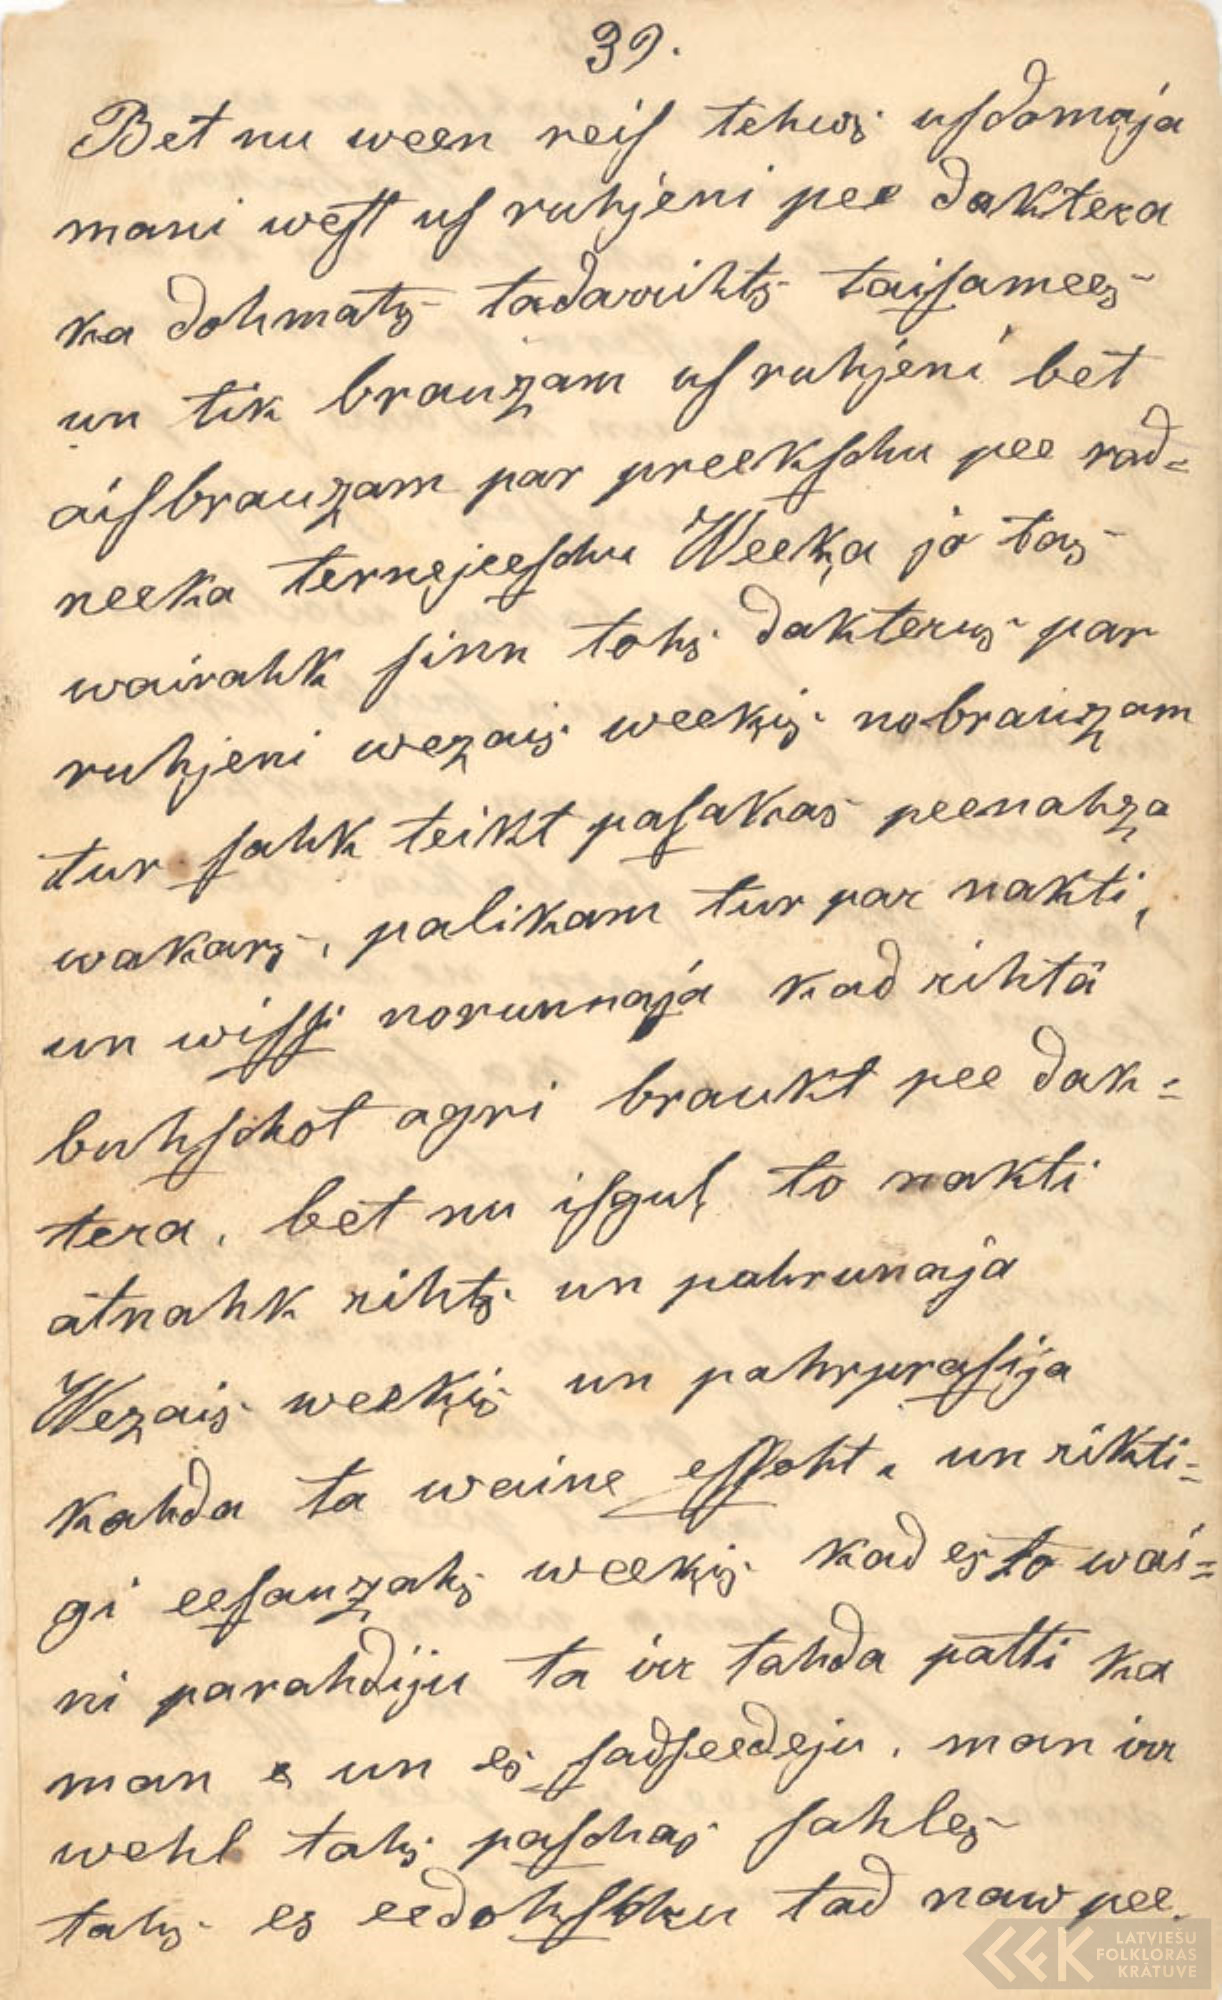 39.
Bet nu ween reiſ tehws uſdomaja
mani weſt uſ ruhjeni pee daktera
ka dohmats tadarrihts taiſamees
un tik brauzam uſ ruhjeni bet
aiſbrauzam par preekſchu pee rad=
neeka ternejeeſchu Weeķa jo tas
wairahk ſinn tohs dakterus par
ruhjeni wezais weeķis nobrauzam
tur ſahk teikt paſakas peenahza
wakars, palikam tur par nakti,
un wiſſi norunnaja kad rihtâ
buhſchot agri braukt pee dak=
tera, bet nu iſguļ to nakti
atnahk rihts un pahrunaja
Wezais weeķis un pahrpraſija
kahda ta waine eſſoht, un rikti=
gi eeſauzahs weeķis kad es to wai=
ni parahdiju ta irr tahda patti ka
man un es ſadſeedeju, man irr
wehl tahs paſchas ſahles
tahs es eedohſchu tad naw pee
LATVIEŠU
FOLKLORAS
KRĀTUVE